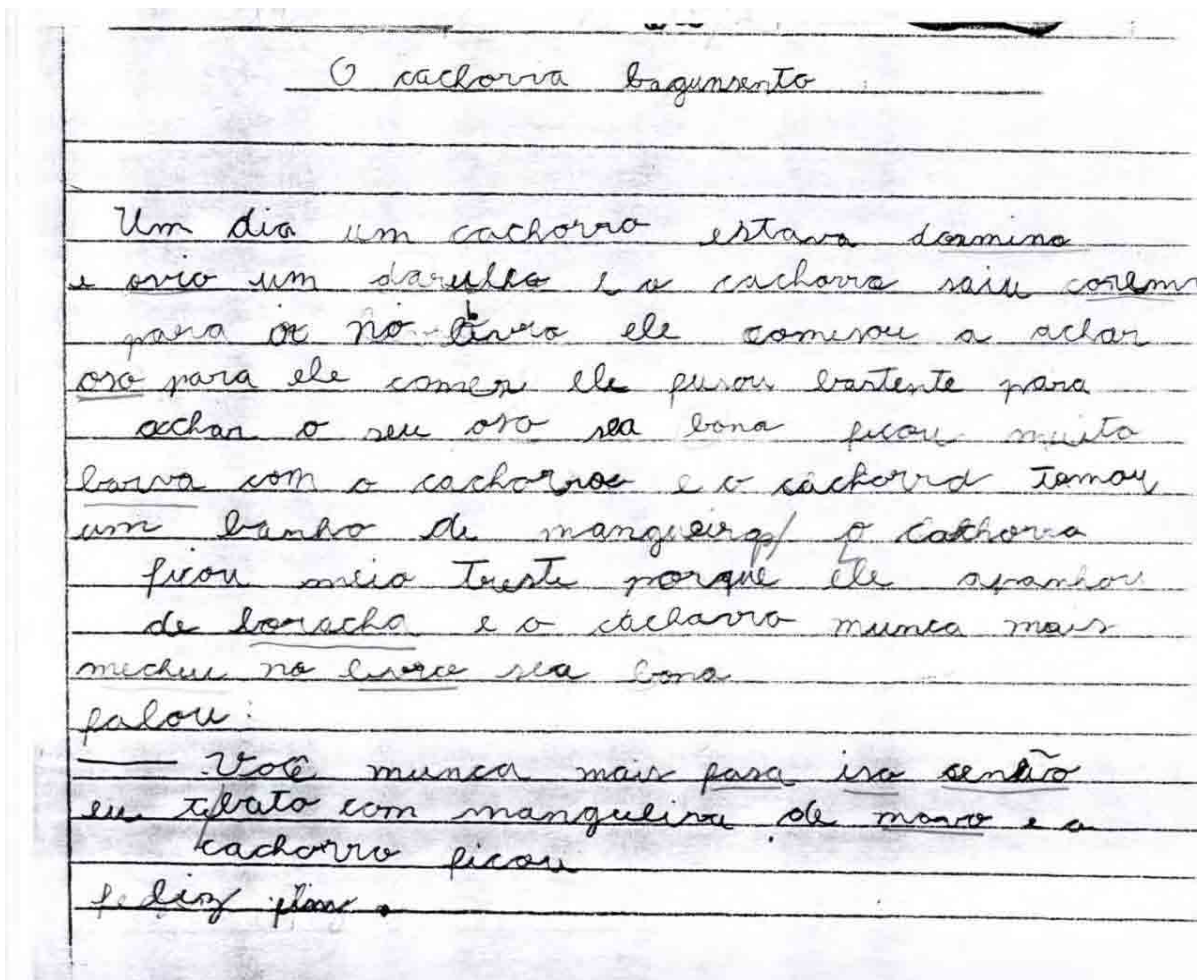 O cachorro bagunsento
Um dia um cachorro estava dormino
e ovio um darulho e o cachorro saiu corem
para o no livro ele comesou a achar
oso para ele comer ele pusou bastente para
achar o seu oso sea bona ficou muito
barva com o cachorro e o cachorro tomou
um banho de mangueira o cachorro
ficou meio treste porque ele apanhou
de boracha e o cachorro munca mais
mecheu no livro sea bona
falou:
— Você munca mais fasa iso senão
eu te bato com mangueira de novo e o
cachorro ficou
feliz